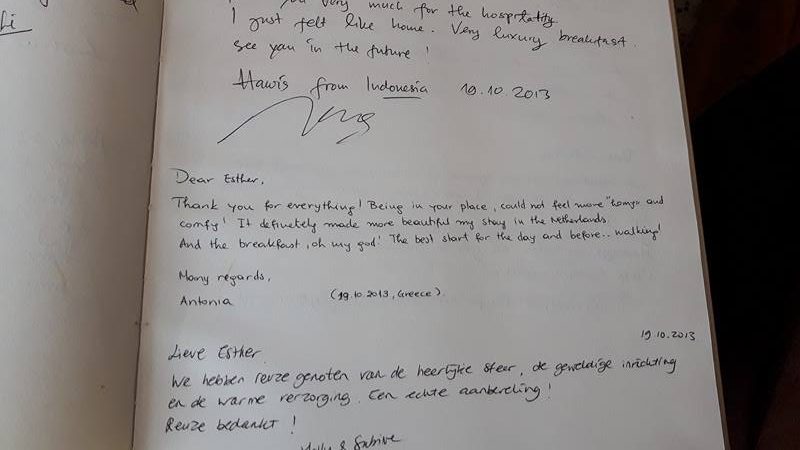 you very much for the hospitality.
I just felt like home. Very luxury breakfast.
see you in the future !
Hawis from Indonesia 19.10.2013
Dear Esther,
Thank you for everything! Being in your place, could not feel more "homy" and
comfy! It definetely made more beautiful my stay in the Netherlands.
And the breakfast, oh my god! The best start for the day and before.. walking!
Many regards,
Antonia (19.10.2013, Greece)
19.10.2013
Lieve Esther
We hebben reuze genoten van de heerlijke sfeer, de geweldige inrichting
en de warme verzorging. Een echte aanbeveling!
Reuze bedankt !
& Sabine